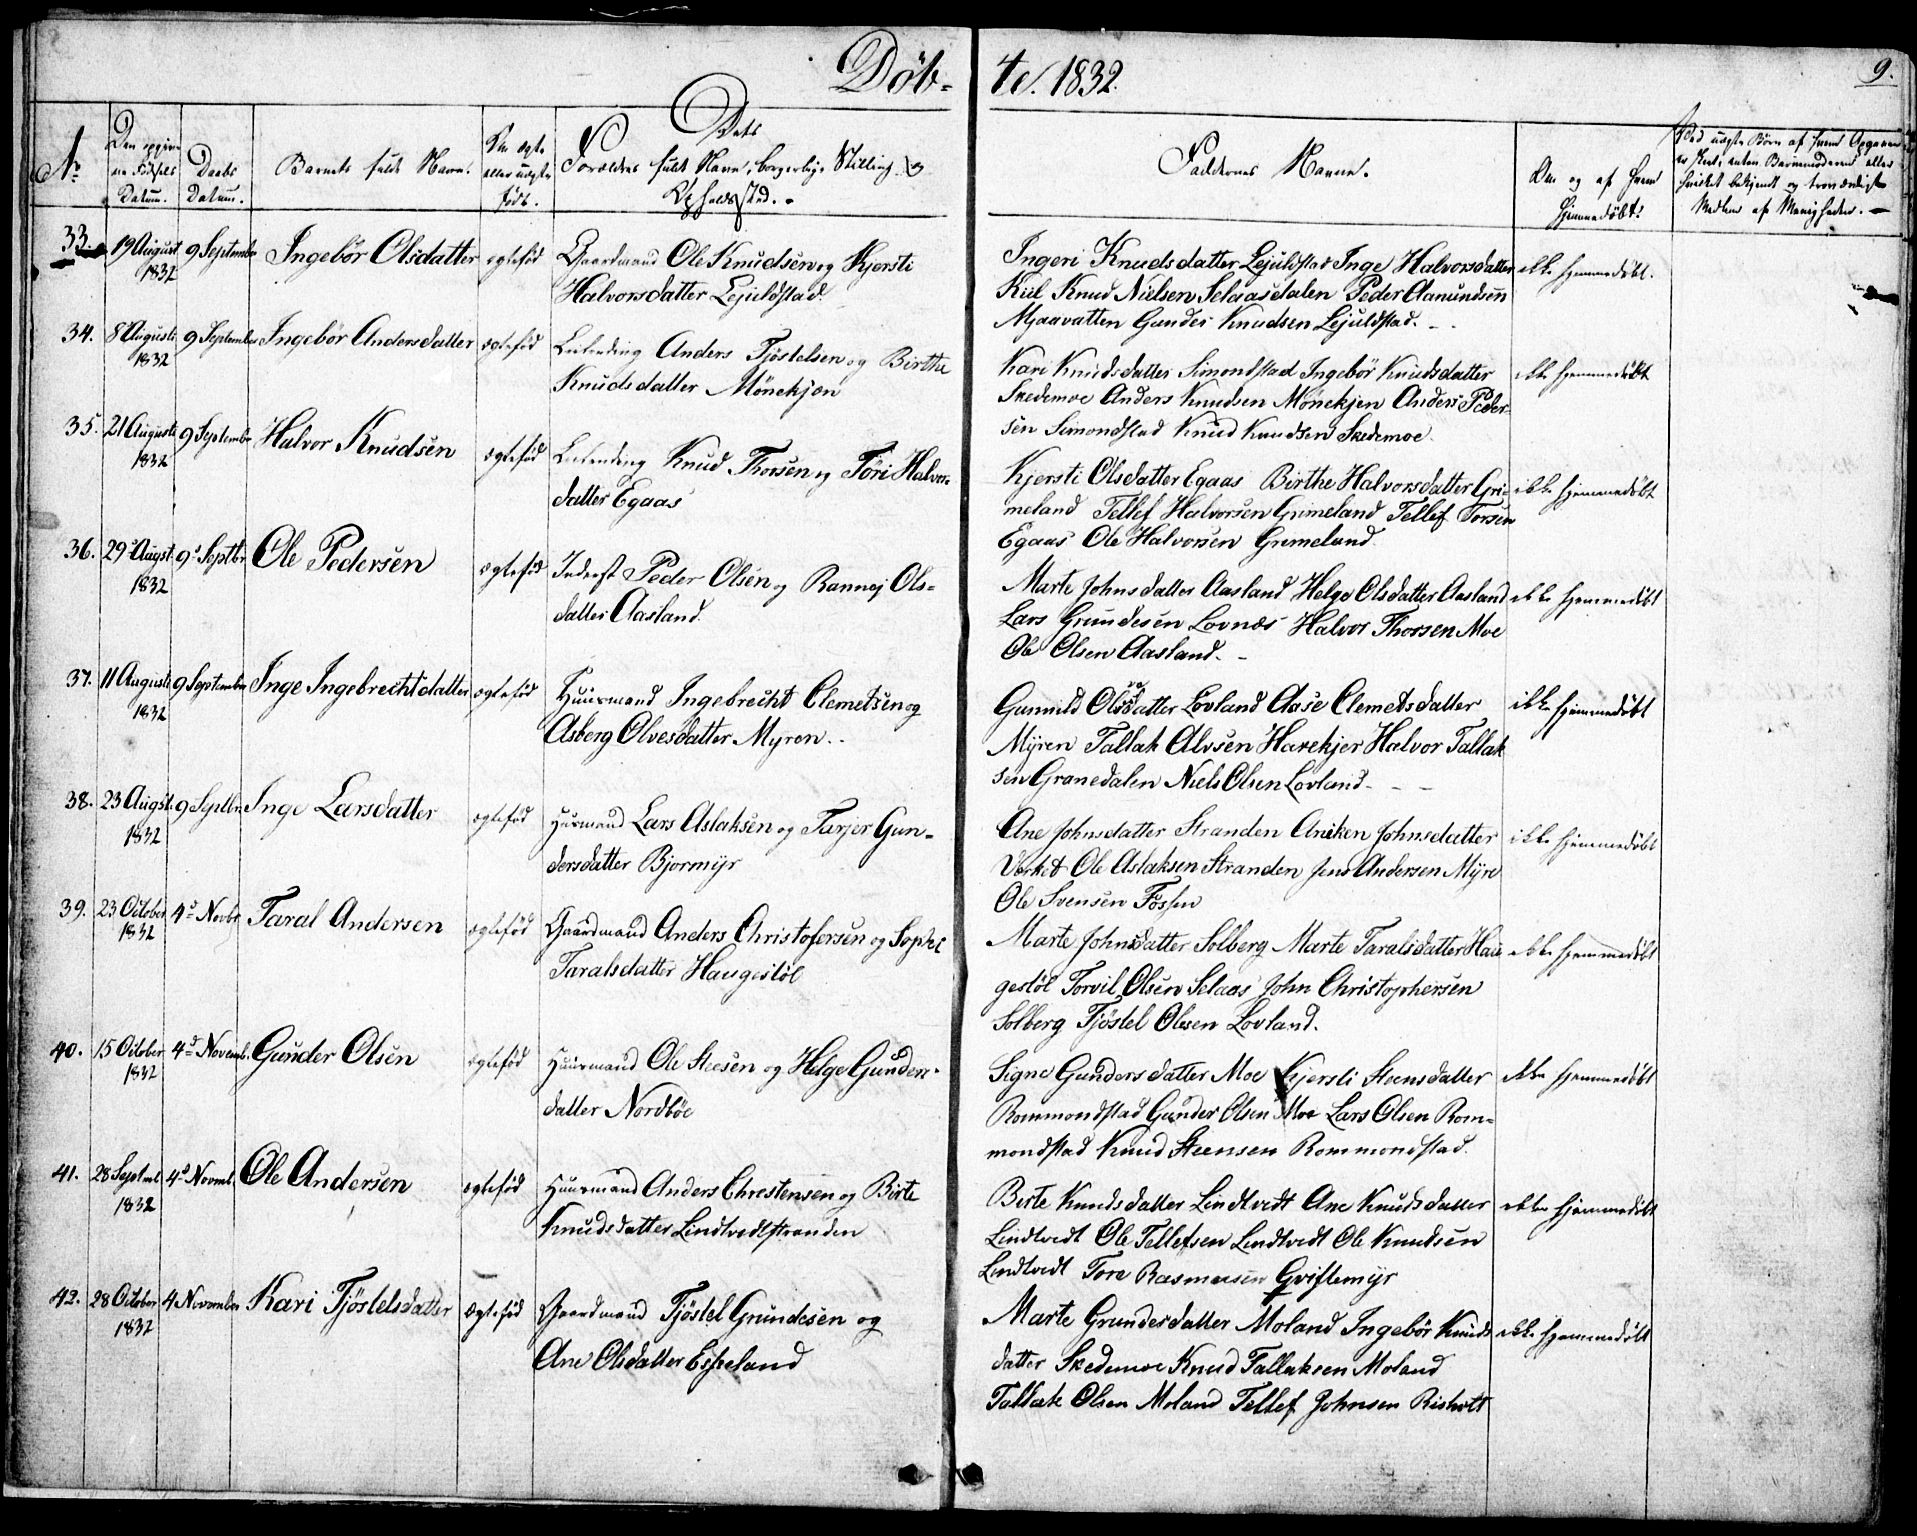 Døb- te. 1832.
9.
No
Den opgivne Fødsels Datum.
Daabs Datum.
Barnets fulde Navn.
Om ægte eller uægte født.
Dets
Forældres fulde Navn, borgerlige Stilling og
Opholdssted.
Faddernes Navne.
Om og af hvem
hjemmedøbt.
Ved uægte Børn af hvem Opgaven
er skeet, enten Barnemoderen eller
hvilket bekjendt og troværdigt
Medlem af Menigheden.
33. 19 August 1832 9 September Ingebør Olsdatter ægtefød Gaardmand Ole Knudsen og Kjersti
Halvorsdatter Lejuldstad.
Ingeri Knudsdatter Lejuldstad Inge Halvorsdatter
Kiil Knud Nielsen Selaasdalen Peder Amundsen
Mjaavatten Gunder Knudsen Lejuldstad.
ikke hjemmedøbt.
34. 8 Augusti 1832 9 September Ingebør Andersdatter ægtefød Leilending Anders Tjøstelsen og Birthe
Knudsdatter Mönekjøn
Kari Knudsdatter Simonstad Ingebör Knudsdatter
Skedemoe Anders Knudsen Mönekjen Anders Peder-
sen Simondstad Knud Knudsen Skedemoe.
ikke hjemmedøbt
35. 21 Augusti 1832 9 September Halvor Knudsen ægtefød Leilending Knud Thorsen og Töri Halvors-
datter Egaas
Kjersti Olsdatter Egaas Birthe Halvorsdatter Gri-
meland Tellef Halvorsen Grimeland Tellef Torsen
Egaas Ole Halvorsen Grimeland
ikke hjemmedøbt
36. 29 Augst. 1832 9 Septbr. Ole Pedersen ægtefød Inderst Peder Olsen og Rannej Ols-
datter Aasland.
Marte Johnsdatter Aasland Helge Olsdatter Aasland
Lars Grundesen Lovnæs Halvor Thorsen Moe
Ole Olsen Aasland.
ikke hjemmedøbt
37. 11 Augusti 1832 9 September Inge Ingebrechtsdatter ægtefød Huusmand Ingebrecht Clemetsen og
Asberg Olvesdatter Myren.
Gunnild Olsdatter Lovland Aase Clemetsdatter
Myren Tallak Alvsen Harekjer Halvor Tallak
sen Granedalen Niels Olsen Lovland.
ikke hjemmedøbt
38. 23 Augst. 1832 9 Septbr. Inge Larsdatter ægtefød Huusmand Lars Aslaksen og Tarjer Gun-
dersdatter Bjormyr
Ane Johnsdatter Stranden Aniken Johnsdatter
Verket Ole Aslaksen Stranden Jens Andersen Myre
Ole Svensen Fossen
ikke hjemmedøbt
39. 23 October 1832 4de Novbr. Taral Andersen ægtefød Gaardmand Anders Christofersen og Sophe
Taralsdatter Haugestöl
Marte Johnsdatter Solberg Marte Taralsdatter Hau
gestöl Torvil Olsen Selaas John Christophersen
Solberg Tjöstel Olsen Lovland.
ikke hjemmedøbt
40. 15 October 1832 4de Novemb. Gunder Olsen ægtefød Huusmand Ole Steesen og Helge Gunders-
datter Nordböe
Signe Gundersdatter Moe Kjersti Steensdatter
Rommondstad Gunder Olsen Moe Lars Olsen Rom-
mondstad Knud Steensen Rommondstad.
ikke hjemmedøbt
41. 28 Septmb. 1832 4de Novmb. Ole Andersen ægtefød Huusmand Anders Chrestensen og Birte
Knudsdatter Lindtvedtstranden
Berte Knudsdatter Lindtvedt Ane Knudsdatter
Lindtvedt Ole Tellefsen Lindtvedt Ole Knudsen
Lindtvedt Tore Rasmusen Gviftemyr
ikke hjemmedøbt
42. 28 October 1832 4 November Kari Tjöstelsdatter ægtefød Gaardmand Tjöstel Grundesen og
Ane Olsdatter Espeland
Marte Grundesdatter Moland Ingebör Knuds
datter Skedemoe Knud Tallaksen Moland
Tallak Olsen Moland Tellef Johnsen Risholt
ikke hjemmedøbt